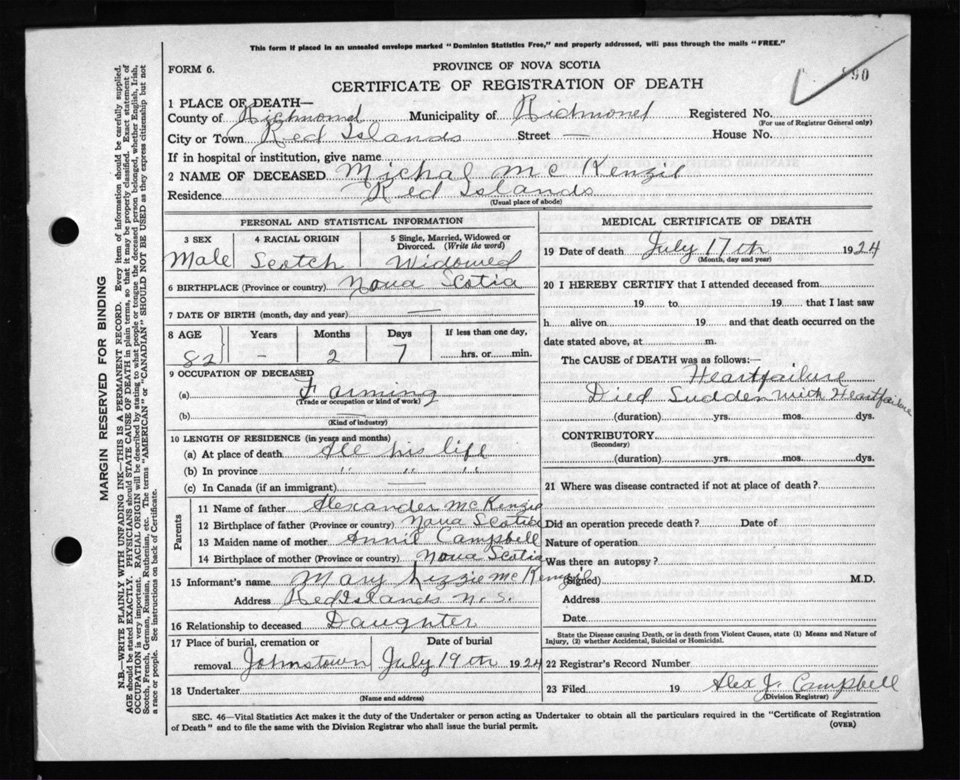 This form if placed in an unsealed envelope marked "Dominion Statistics Free," and properly addressed, will pass through the mails "FREE."
FORM 6.
PROVINCE OF NOVA SCOTIA
CERTIFICATE OF REGISTRATION OF DEATH
90
1 PLACE OF DEATH—
County of Richmond Municipality of Richmond Registered No.
(For use of Registrar General only)
City or Town Red Islands Street — House No.
If in hospital or institution, give name
2 NAME OF DECEASED Michal Mc Kenzie
Residence Red Islands
(Usual place of abode)
PERSONAL AND STATISTICAL INFORMATION
3 SEX 4 RACIAL ORIGIN 5 Single, Married, Widowed or Divorced. (Write the word)
Male Scotch Widowed
6 BIRTHPLACE (Province or country) Nova Scotia
7 DATE OF BIRTH (month, day and year) —
8 AGE Years Months Days If less than one day,
82 - 2 7 hrs. or min.
9 OCCUPATION OF DECEASED
(a) Farming
(Trade or occupation or kind of work)
(b) —
(Kind of industry)
10 LENGTH OF RESIDENCE (in years and months)
(a) At place of death All his life
(b) In province " " "
(c) In Canada (if an immigrant) —
Parents
11 Name of father Alexander McKenzie
12 Birthplace of father (Province or country) Nova Scotia
13 Maiden name of mother Annie Campbell
14 Birthplace of mother (Province or country) Nova Scotia
15 Informant's name Mary Lizzie McKenzie
Address Red Islands N.S.
16 Relationship to deceased Daughter
17 Place of burial, cremation or Date of burial
removal Johnstown July 19th 1924
18 Undertaker
(Name and address)
MEDICAL CERTIFICATE OF DEATH
19 Date of death July 17th 1924
(Month, day and year)
20 I HEREBY CERTIFY that I attended deceased from
19 to 19 that I last saw
h alive on 19 and that death occurred on the
date stated above, at m.
The CAUSE of DEATH was as follows:—
Heartfailure
Died Sudden with Heartfailure
(duration) yrs. mos. dys.
CONTRIBUTORY
(Secondary)
(duration) yrs. mos. dys.
21 Where was disease contracted if not at place of death?
Did an operation precede death? Date of
Nature of operation
Was there an autopsy?
(Signed) M.D.
Address
Date
State the Disease causing Death, or in death from Violent Causes, state (1) Means and Nature of
Injury, (2) whether Accidental, Suicidal or Homicidal.
22 Registrar's Record Number
23 Filed 19 Alex J. Campbell
(Division Registrar)
SEC. 46—Vital Statistics Act makes it the duty of the Undertaker or person acting as Undertaker to obtain all the particulars required in the "Certificate of Registration
of Death" and to file the same with the Division Registrar who shall issue the burial permit. (OVER)
MARGIN RESERVED FOR BINDING
N.B.—WRITE PLAINLY WITH UNFADING INK—THIS IS A PERMANENT RECORD. Every item of information should be carefully supplied.
AGE should be stated EXACTLY. PHYSICIANS should STATE CAUSE OF DEATH in plain terms, so that it may be properly classified. Exact statement of
OCCUPATION is very important. RACIAL ORIGIN will be described by stating to what people or tongue the deceased person belonged, whether English, Irish,
Scotch, French, German, Russian, Ruthenian, etc. The terms "AMERICAN" or "CANADIAN" SHOULD NOT BE USED as they express citizenship but not
a race or people. See instructions on back of Certificate.